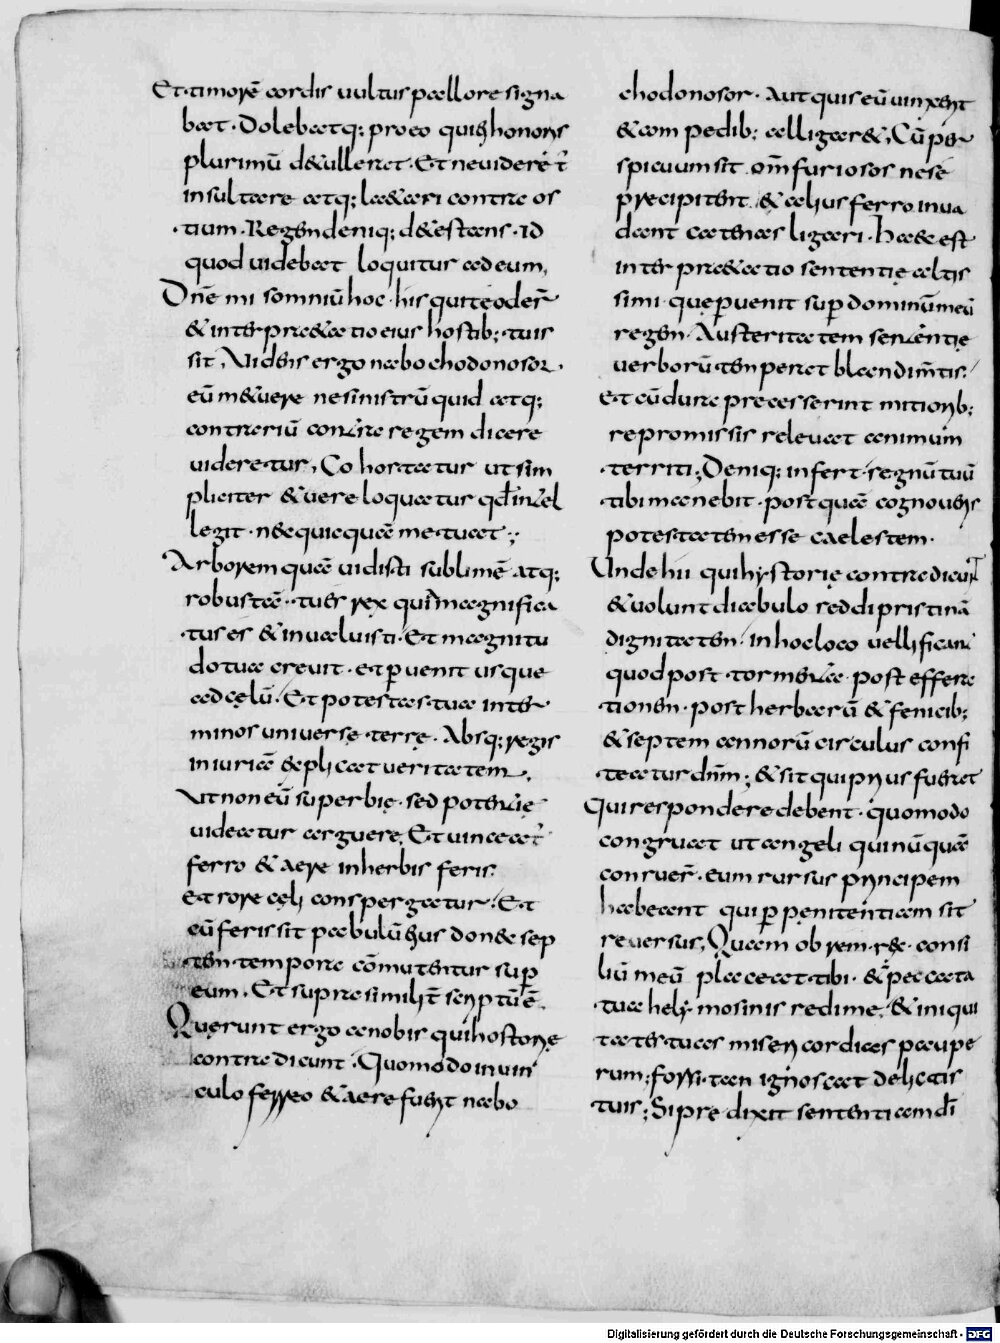 Et timorē cordis uultus pallore signa
bat. Dolebatq; pro eo qui ei honoris
plurimū detullerat. Et ne uideret̄
insultare atq; laetari contra os
tium. Regem deniq; detestans. Id
quod uidebat loquitur ad eum,
Dn̄e mi somniū hoc his qui te oder̄
& interpraetatio eius hostib; tuis
sit, Uidens ergo nabochodonosor.
eū metuere ne sinistrū quid atq;
contrariū contra regem dicere
uideretur, Cohortatur ut sim
pliciter & uere loquatur qđ intel
legit. nec quicquam metuat;
Arborem quā uidisti sublimē atq;
robustā. tu es rex qui magnifica
tus es & inualuisti. Et magnitu
do tua creuit. et ꝑuenit usque
ad cęlū. Et potestas tua inter
minos uniuersę terrę. Absq; regis
iniuriā explicat ueritatem,
Ut non eū superbię. sed potentię
uideatur arguere, Et uinceat̄
ferro & aere in herbis feris.
Et rore cęli conspergatur. Et
cū feris sit pabulū eius donec sep
tem tempora cōmutentur sup̄
eum. Et supra similit̄ scriptū ē.
Querunt ergo a nobis qui hostorię
contradicunt. Quomodo in uin
culo ferreo & aere fuerit nabo
chodonosor. Aut quis eū uinxerit
& compedib; alligaret, Cū per
spicuum sit om̄ furiosos ne se
precipitent & alius ferro inua
dant catenas ligari. Haec est
interpraetatio sententię altis
simi. quę ꝑuenit sup̄ dominū meū
regem. Austeritatem sententię
uerborū temperat blandim̄tis.
Et cū dura precesserint mitiorib;
repromissis releuat animum
territi; Deniq; infert. regnū tuū
tibi manebit. postquā cognoueris
potestatem esse caelestem.
Unde hii qui hystorię contradicunt
& uolunt diabulo reddi pristinā
dignitatem. in hoc loco uellificant̄
quod post tormenta post effera
tionem. post herbarū & fenicib;
& septem annorū circulus confi
teatur dn̄m; & sit qui prius fuerat
Qui respondere debent. quomodo
congruat ut angeli qui nūquā
conruer̄. eum rursus principem
habeant qui ꝑ penitentiam sit
reuersus, Quam ob rem rex consi
liū meū placeat tibi. & peccata
tua helymosinis redime, & iniqui
tates tuas misericordias paupe
rum; forsitan ignoscat delictis
tuis; Si predixit sententiam dī